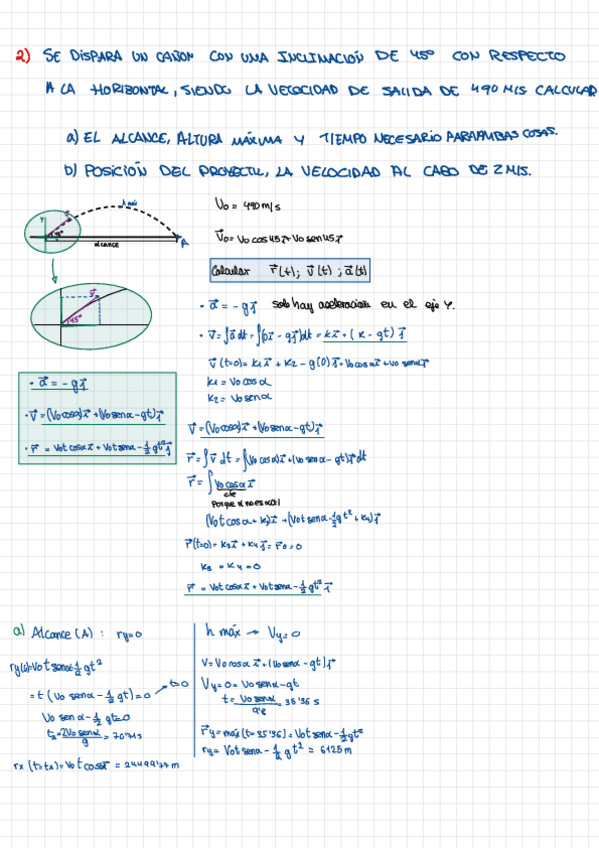 2) SE DISPARA UN CAÑON CON UNA INCLINACIÓN DE 45º CON RESPECTO
A LA HORIZONTAL, SIENDO LA VELOCIDAD DE SALIDA DE 490 M/S CALCULAR
a) EL ALCANCE, ALTURA MÁXIMA Y TIEMPO NECESARIO PARA AMBAS COSAS.
b) POSICIÓN DEL PROYECTIL, LA VELOCIDAD AL CABO DE 2 M/S.
h máx
Y
45º
alcance
A
V₀ = 490 m/s
V⃗₀ = V₀ cos 45 i⃗ + V₀ sen 45 j⃗
Calcular r⃗(t); v⃗(t); a⃗(t)
v⃗
45º
• a⃗ = -g j⃗ solo hay aceleración en el eje Y.
• v⃗ = ∫a⃗ dt = ∫(0i⃗ - g j⃗)dt = k i⃗ + (k - gt) j⃗
v⃗(t=0) = k₁ i⃗ + k₂ - g(0) j⃗ = V₀ cos α i⃗ + V₀ sen α j⃗
k₁ = V₀ cos α
k₂ = V₀ sen α
• a⃗ = -g j⃗
• v⃗ = (V₀ cos α) i⃗ + (V₀ sen α - gt) j⃗
• r⃗ = V₀t cos α i⃗ + V₀t sen α - ½ gt² j⃗
v⃗ = (V₀ cos α) i⃗ + (V₀ sen α - gt) j⃗
r⃗ = ∫v⃗ dt = ∫(V₀ cos α) i⃗ + (V₀ sen α - gt) j⃗ dt
r⃗ = ∫ V₀ cos α i⃗
cte
Porque
(V₀t cos α + k₃) i⃗ + (V₀t sen α - ½ gt² + k₄) j⃗
r⃗(t=0) = k₃ i⃗ + k₄ j⃗ = r⃗₀ = 0
k₃ = k₄ = 0
r⃗ = V₀t cos α i⃗ + V₀t sen α - ½ gt² j⃗
a) Alcance (A): ry=0
ry(t)= V₀t sen α - ½ gt²
= t (V₀ sen α - ½ gt) = 0 → t=0
V₀ sen α - ½ gt = 0
tₐ = 2V₀ sen α / g = 70'71 s
rx (t=tₐ) = V₀t cos α = 24499'77 m
h máx → Vy = 0
V = V₀ cos α i⃗ + (V₀ sen α - gt) j⃗
Vy = 0 = V₀ sen α - gt
t = V₀ sen α / 9'8 = 35'36 s
r⃗y = máx (t=35'36) = V₀t sen α - ½ gt²
ry = V₀t sen α - ½ gt² = 6125 m